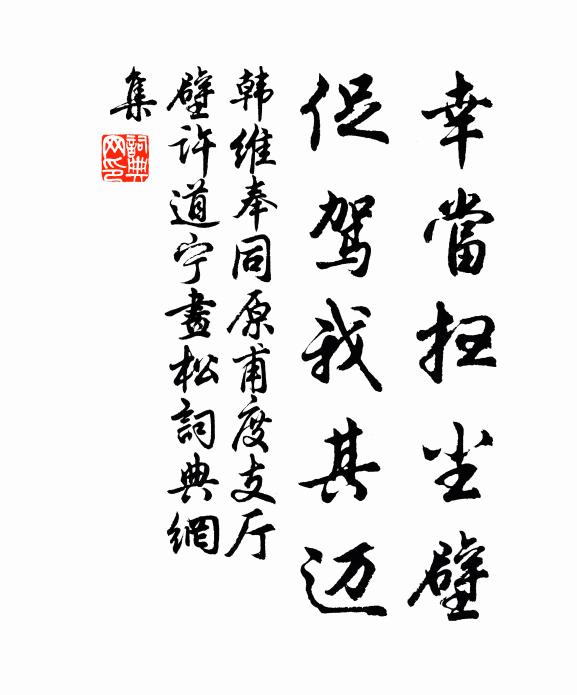 幸當扫尘壁
促驾我其迈
韩维奉同原甫度支厅
壁许道宁畫松詞典網
集
詞典网印